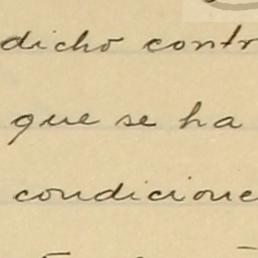 dicho contr
que se ha
condicione